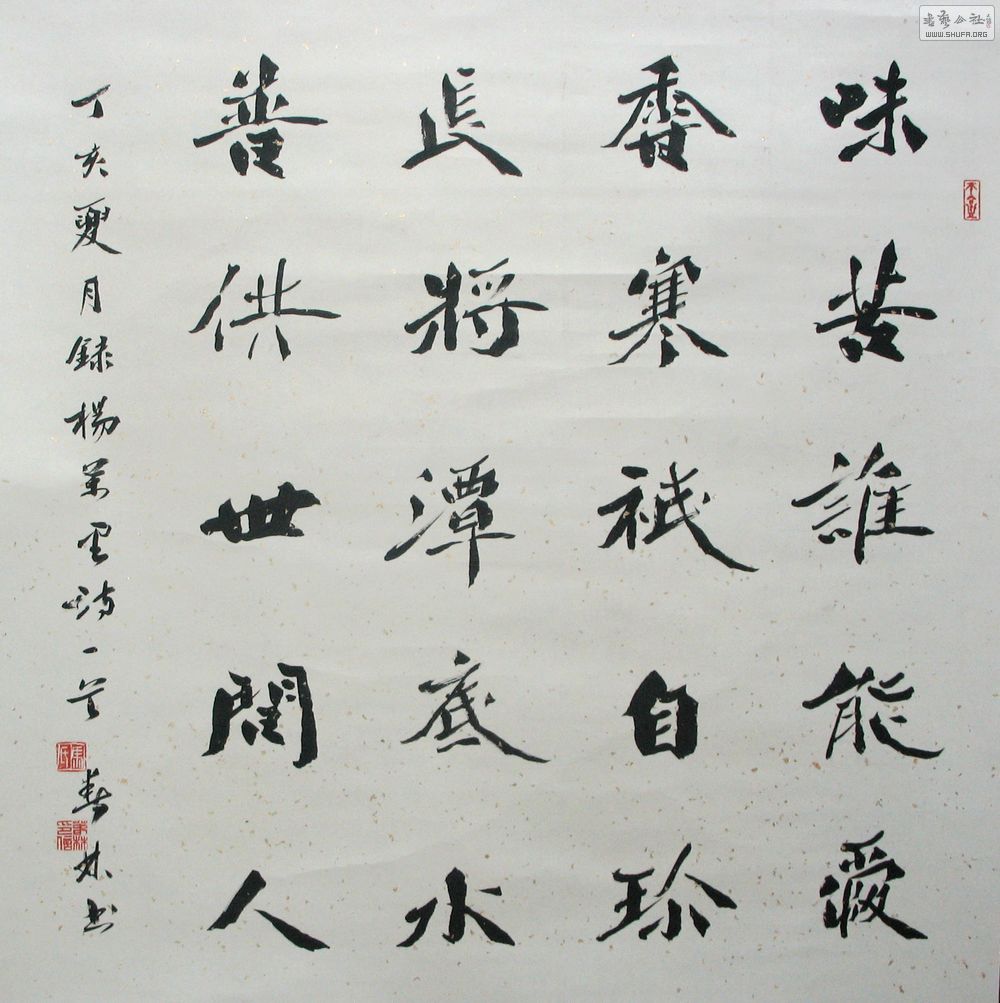 味苦誰能愛
香寒祇自珍
長將潭底水
普供世間人
丁亥夏月錄楊萬里詩一首
春林書
書藝公社
WWW.SHUFA.ORG